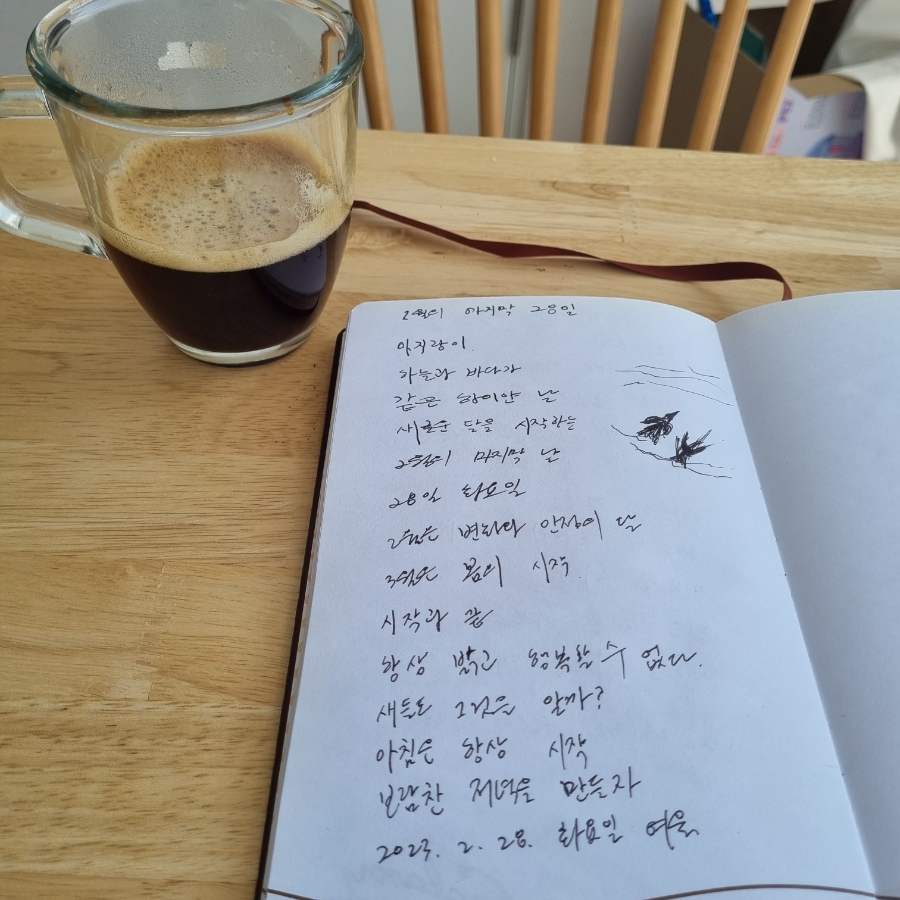 2월의 마지막 28일
아지랑이.
하늘과 바다가
같은 향이안 날
새로운 달을 시작하는
2월의 마지막 날
28일 화요일
2월은 변화와 안정의 달
3월은 봄의 시작.
시작과 끝
항상 밝고 행복할 수 없다.
새들도 그것을 알까?
아침은 항상 시작
보람찬 저녁을 만들자
2023. 2. 28. 화요일